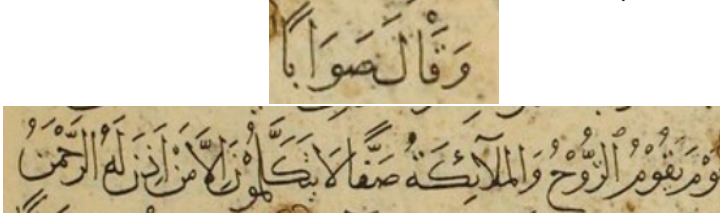 وَقَالَ صَوَابًا
يَوْمَ يَقُوْمُ الرُّوْحُ وَالْمَلَآئِكَةُ صَفًّا لَا يَتَكَلَّمُوْنَ اِلَّا مَنْ اَذِنَ لَهُ الرَّحْمٰنُ